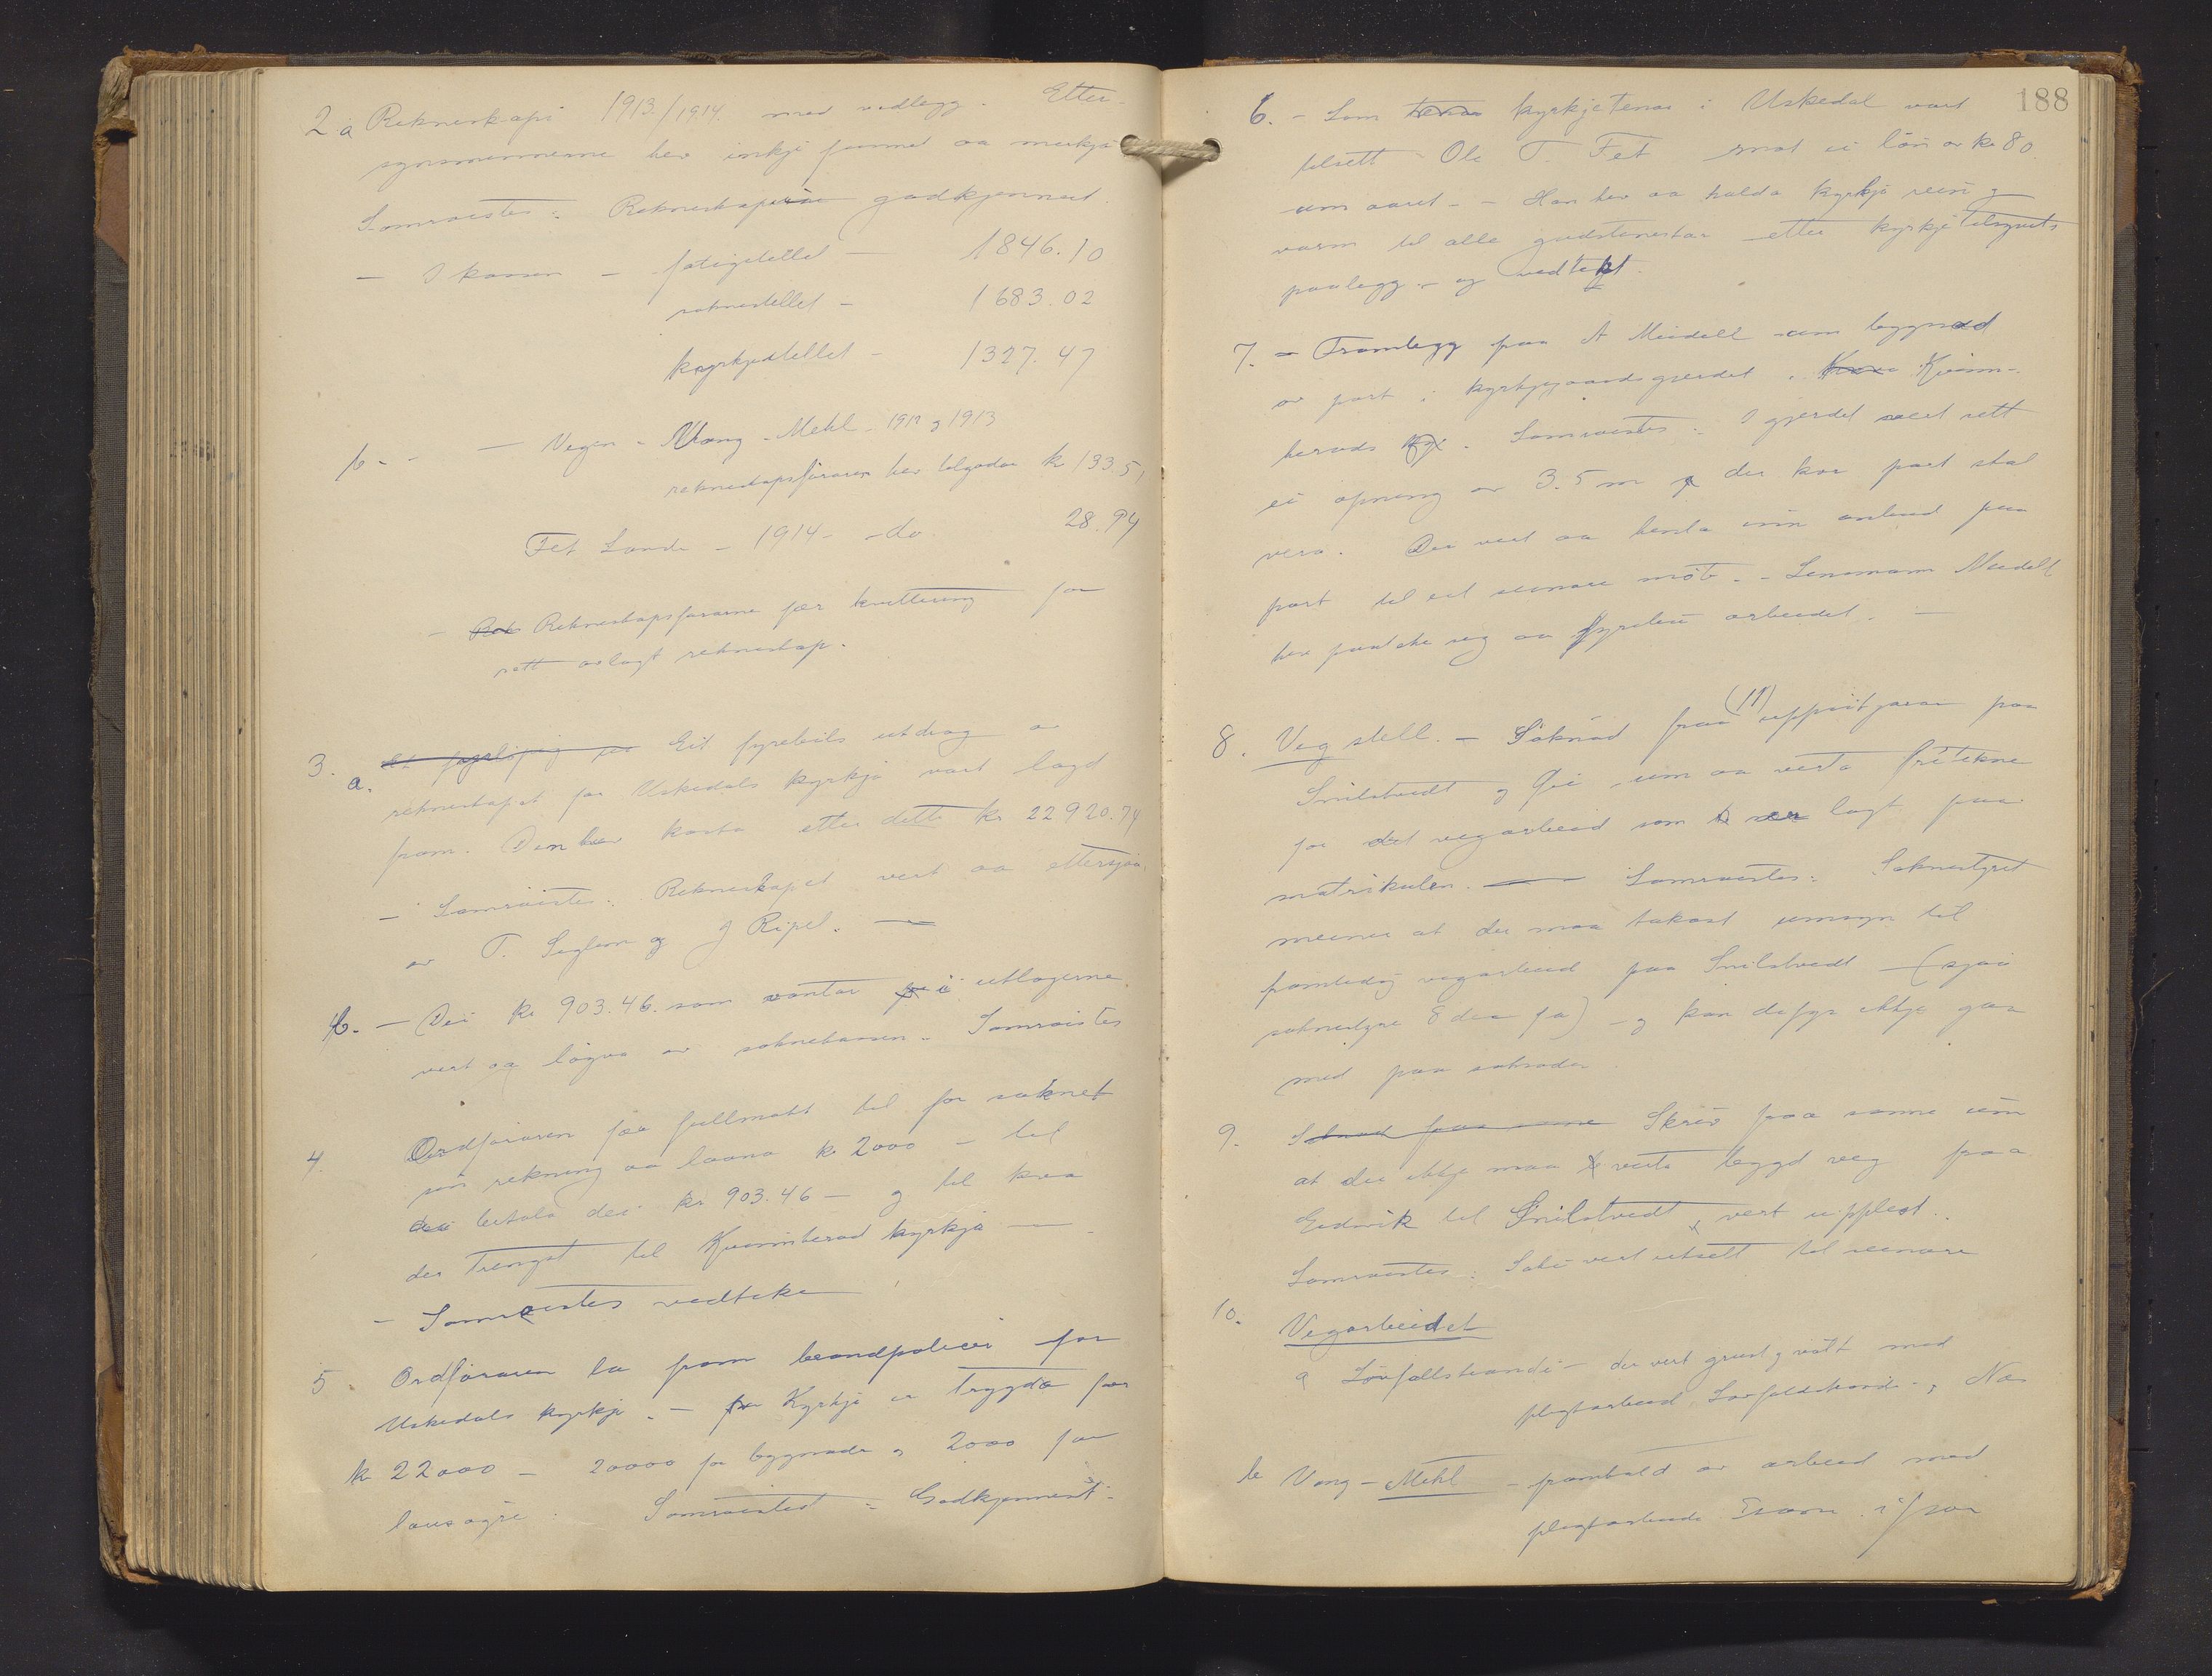 2 a Rekneskapi 1913/1914 med vedlegg. Etter-
synsmennerne hev inkje funnet aa merkja
Samrøistes: Rekneskapi godkjennest.
— I kassen — fatigstellet — 1846.10
soknestellet — 1683.02
kyrkjestellet — 1327.47
b - — Vegen - Vang - Mehl - 1912 og 1913
rekneskapsføraren hev tilgodar kr 133.51
Fet Lande - 1914 - - do. 28.94
- Rekneskapsførarne fær kvittering for
rett avlagt rekneskap.
3. a. Eit fyrebils utdrag av
rekneskapet for Uskedals kyrkja vart lagd
fram. Den hev kosta etter dette kr 22920.74
— Samrøistes: Rekneskapet vert aa ettersjaa
av T. Seglem og J Ripel. —
b. — Dei kr 903.46 som vantar i utlogerne
vert aa løyva av soknekassen. Samrøistes
4. Ordføraren fær fullmakt til for soknet
sin rekning aa laana kr 2000 — til
betala dei kr 903.46 — og til kva
der trengst til Kvinnherad kyrkja —
- Samrøistes vedteke
5. Ordføraren la fram brandpolicer for
Uskedals kyrkje. — Kyrkja er trygda for
kr 22000 — 20000 for bygnader og 2000 for
lausøyre. Samrøistest: Godkjennest.
188
6. - Som kyrkjetenar i Uskedal vart
tilsett Ole T. Fet mot ei løn av kr 80
um aaret. - Han hev aa halda kyrkja rein og
varm til alle gudstenestar etter kyrkjetilsynets
paalegg - og vedtekt.
7. - Framlegg fraa A Miidell um bygnad
av port i kyrkjegaardsgjerdet, Kvinn-
herads . Samrøistes: I gjerdet vert sett
ei opning av 3.5 m der kor port skal
vera. Der vert aa henta inn anbud paa
port til eit seinare møte. - Lensmann Miidell
hev paateke seg aa fyreseia arbeidet. —
8. Vegstell. - Søknad fraa (11) uppsitjarar paa
Snilstvedt og Øie um aa verta fritekne
for det vegarbeid som er lagt paa
matrikulen. — Samrøistes: Soknestyret
meiner at der maa takast umsyn til
framtidig vegarbeid paa Snilstvedt — (sjaa
soknestyre 8de f a) - og kan difyr ikkje gaa
med paa søknaden
9. Skriv fraa same um
at der ikkje maa verta bygd veg fraa
Eidsvik til Snilstvedt, vert upplest.
Samrøistes: Saki vert utsett til seinare
10. Vegarbeidet
a Løvfallstrandi - der vert grust og vølt med
pligtarbeid Lovfaldstrandi og Nes
b Vang - Mehl - framhald av arbeid med
pligtarbeide ifraa